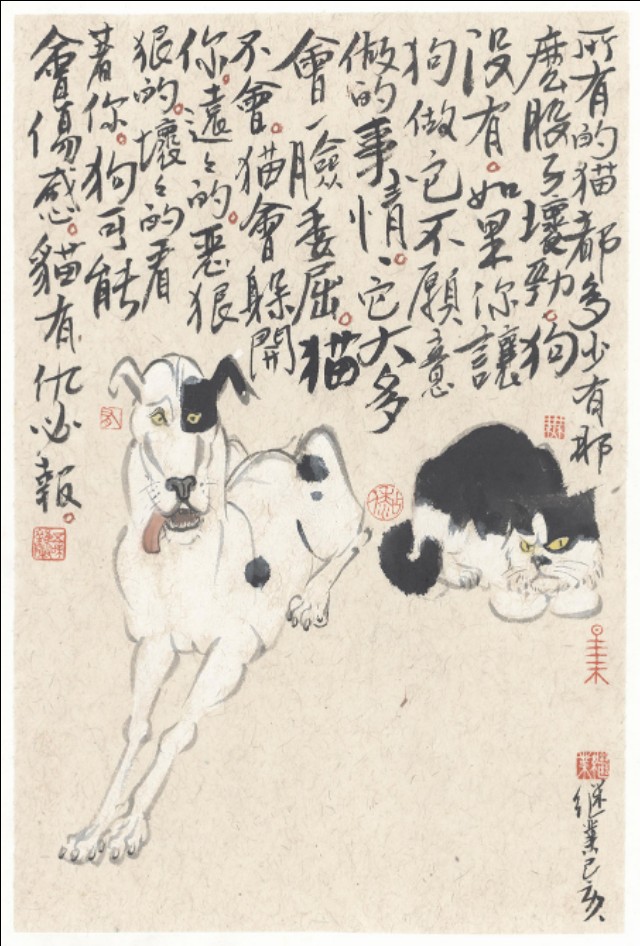 所有的猫都多少有那
麽股子壞勁。狗
没有。如果你讓
狗做它不願意
做的事情。它大多
會一臉委屈。猫
不會。猫會躲開
你。遠々的。惡狠
狠的。壞々的看
著你。狗可能
會傷感。貓有仇必報。
继業己亥